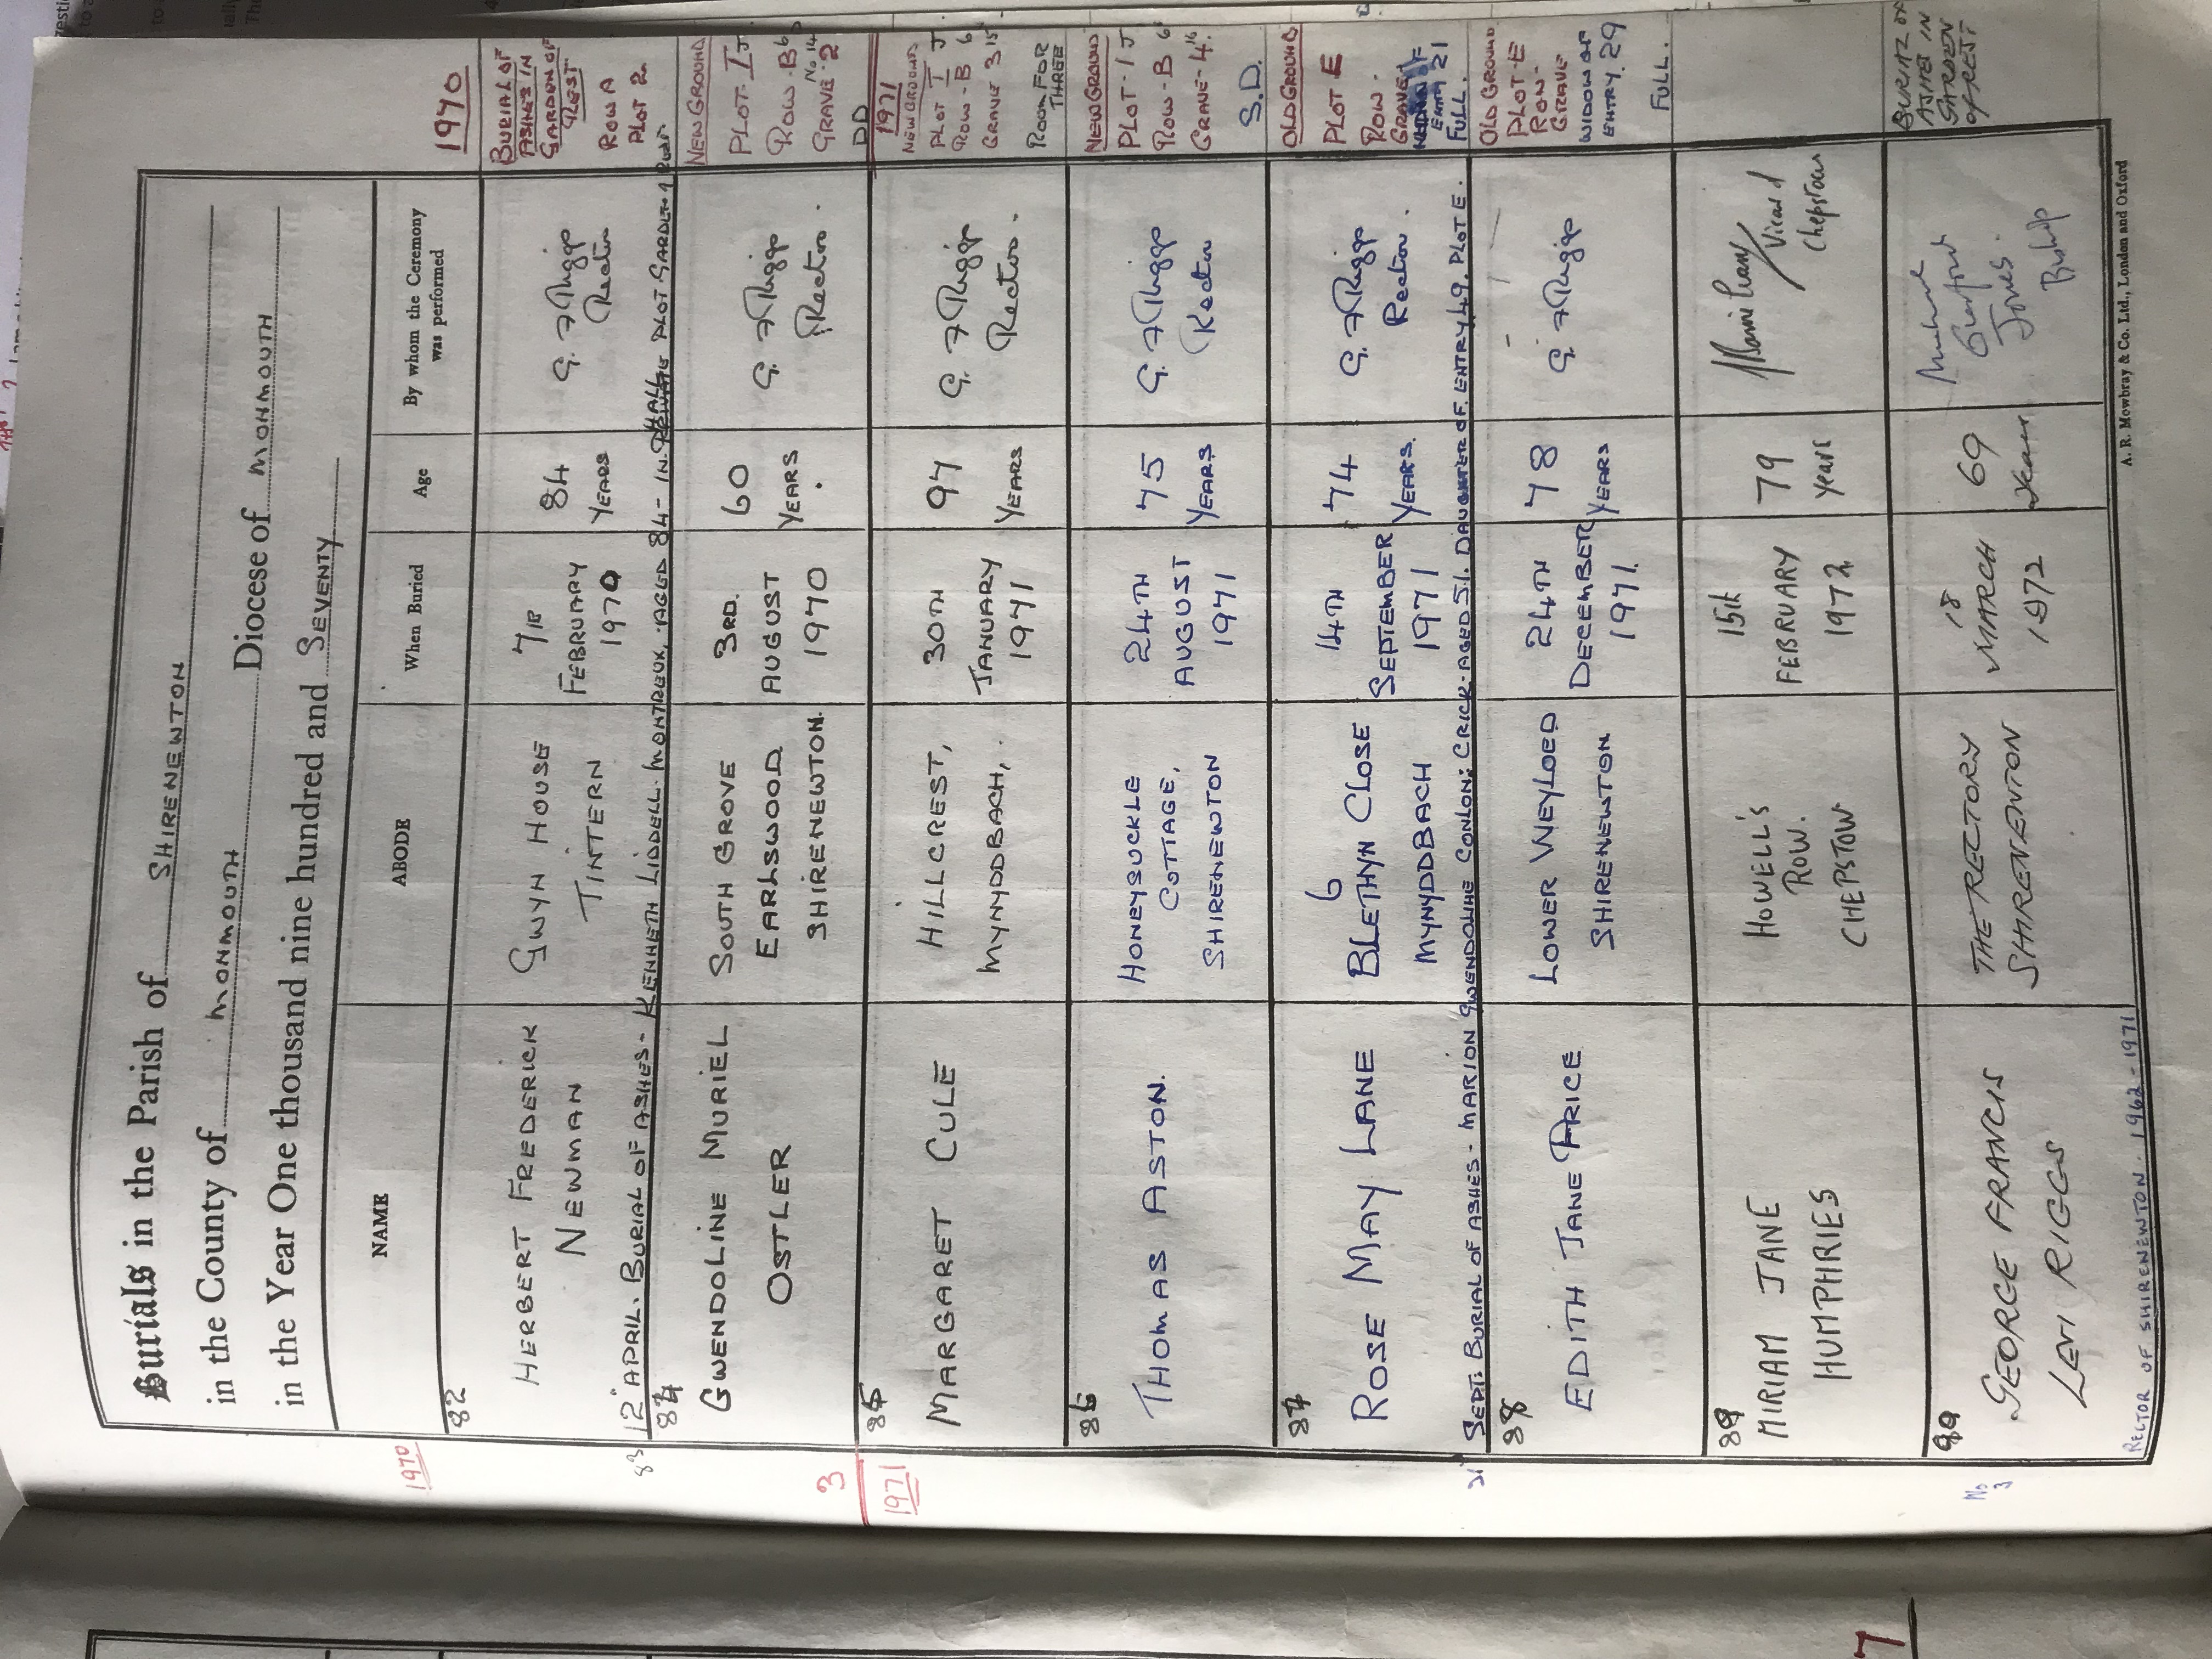 Burials in the Parish of SHIRENEWTON
in the County of MONMOUTH Diocese of MONMOUTH
in the Year One thousand nine hundred and SEVENTY
NAME
ABODE
When Buried
Age
By whom the Ceremony
was performed
1970
1970
82
HERBERT FREDERICK
NEWMAN
GWYN HOUSE
TINTERN
FEBRUARY
1970
84
YEARS
G. F Riggs
Rector
BURIAL OF
ASHES IN
GARDEN OF
REST
ROW A
PLOT 2
83
12 APRIL. BURIAL OF ASHES - KENNETH LIDDELL. MONTREUX. AGED 84 - IN HALL PLOT GARDEN
84
GWENDOLINE MURIEL
OSTLER
SOUTH GROVE
EARLSWOOD
SHIRENEWTON.
3RD.
AUGUST
1970
60
YEARS.
G. F Riggs
Rector.
NEW GROUND
PLOT - I J
ROW - B 6
No 14
GRAVE - 2
DD
3
1971
1971
85
MARGARET CULE
HILLCREST,
MYNYDDBACH,.
30TH
JANUARY
1971
97
YEARS
G. F Riggs
Rector.
NEW GROUND
PLOT I J
ROW - B 6
GRAVE 3 15
ROOM FOR
THREE
86
THOMAS ASTON.
HONEYSUCKLE
COTTAGE,
SHIRENEWTON
24TH
AUGUST
1971
75
YEARS
G. F Riggs
Rector
NEW GROUND
PLOT - I J
ROW - B 6
GRAVE - 4. 16
S.D.
87
ROSE MAY LANE
6
BLETHYN CLOSE
MYNYDDBACH
14TH
SEPTEMBER
1971
74
YEARS.
G. F Riggs
Rector.
OLD GROUND
PLOT E
ROW -
GRAVE
ENTRY 21
FULL.
SEPT: BURIAL OF ASHES - MARION GWENDOLINE CONLON: CRICK. AGED 51. DAUGHTER OF ENTRY 49. PLOT E.
88
EDITH JANE PRICE
LOWER WEYLOED
SHIRENEWTON
24TH
DECEMBER
1971.
78
YEARS
G. F Riggs
OLD GROUND
PLOT - E
ROW -
GRAVE
WIDOW OF
ENTRY. 29
FULL.
89
MIRIAM JANE
HUMPHRIES
HOWELL'S
ROW.
CHEPSTOW
15th
FEBRUARY
1972
79
years
Vicar of
Chepstow
No
3
GEORGE FRANCIS
LEVI RIGGS
THE RECTORY
SHIRENEWTON
18
MARCH
1972
69
years
Jones.
Bishop
BURIAL OF
ASHES IN
GARDEN
OF REST
RECTOR OF SHIRENEWTON. 1962 - 1971
A. R. Mowbray & Co. Ltd., London and Oxford
7